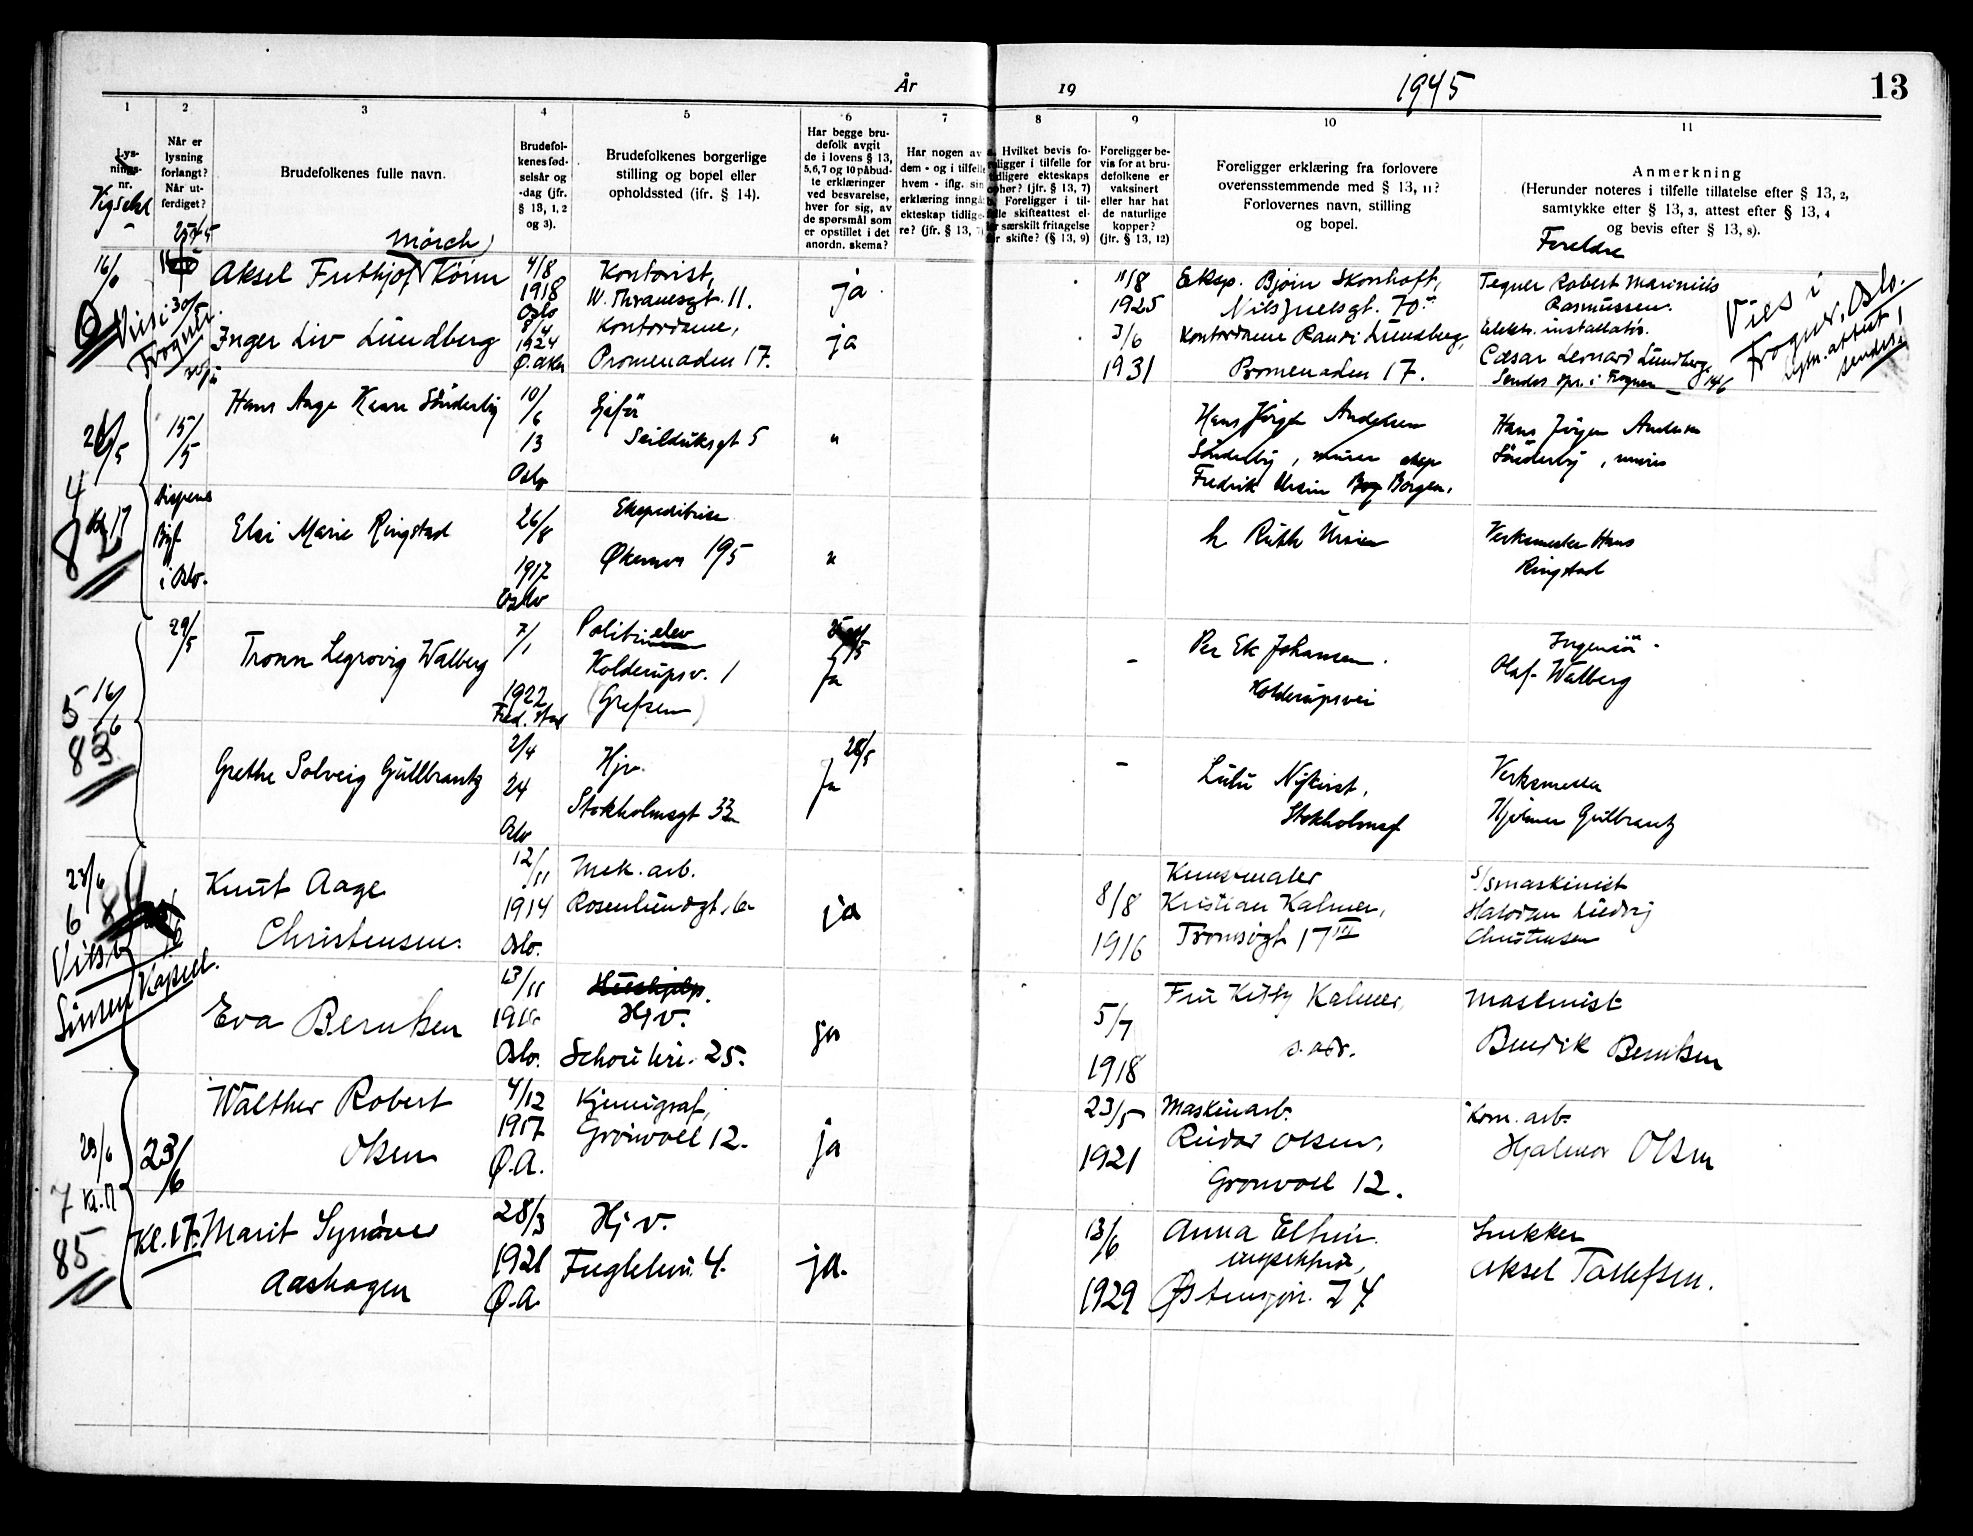 År 19 1945
13
1
Lys-
nings-
nr.
Vigselsd
2
Når er
lysning
forlangt?
Når ut-
ferdiget?
3
Brudefolkenes fulle navn.
4
Brudefol-
kenes fød-
selsår og
-dag (jfr.
§ 13, 1, 2
og 3).
5
Brudefolkenes borgerlige
stilling og bopel eller
opholdssted (jfr. § 14).
6
Har begge bru-
defolk avgit
de i lovens § 13,
5,6,7 og 10 påbud-
te erklæringer
ved besvarelse,
hver for sig, av
de spørsmål som
er opstillet i det
anordn. skema?
7
Har nogen av
dem - og i tilfelle
hvem - iflg. sin
erklæring inngå
ekteskap tidlige-
re? (jfr. § 13, 7)
8
Hvilket bevis fo-
religger i tilfelle for
tidligere ekteskaps
ophør? (jfr. § 13, 7)
Foreligger i til-
felle skifteattest el-
ler særskilt fritagelse
for skifte? (§ 13, 9)
9
Foreligger be-
vis for at bru-
defolkene er
vaksinert
eller har hat
de naturlige
kopper?
(jfr. § 13, 12)
10
Foreligger erklæring fra forlovere
overensstemmende med § 13, 11?
Forlovernes navn, stilling
og bopel.
11
Anmerkning
(Herunder noteres i tilfelle tillatelse efter § 13, 2,
samtykke efter § 13, 3, attest efter § 13, 4
og bevis efter § 13, 8).
Foreldre
Mörch
Aksel Frithjof
4/8
1918
Oslo
Kontorist,
W. Thranesgt. 11.
ja
11/8
1925
Eksp. Bjørn Skonhoft,
Nils Juelsgt. 70
Tegner Robert Marinius
Rasmussen.
Vies i
Frogner, Oslo.
Vies i 30/5
Frogner
Inger Liv Lundberg
8/4
1924
Ø. Aker
Kontordame,
Promenaden 17.
ja
3/6
1931
Kontordame Randi Lundberg,
Promenaden 17.
Elektr. installatör.
Cæsar Leonard Lundberg.
15/5
Hans Aage Kaare Sönderby
10/6
13
Oslo
Seilduksgt 5
"
Hans Jörgen Andersen
Sönderby, murer
Fredrik Ursin Borgen.
Hans Jörgen Andersen
Sönderby, murer
4
82
kl 17
Dispens
Byf.
i Oslo.
Elsi Marie Ringstad
26/8
1917
Oslo
Ekspeditrise
Økernv 195
"
Ruth Ursin
Verksmester Hans
Ringstad
29/5
Tronn Legrovig Walberg
7/1
1922
Fred.stad
Politielev
Kolderupsv. 1
(Grefsen)
Ja
-
Per Ek Johansen.
Kolderupsvei
Ingeniör
Olaf Walberg
5
16/6
83
Grethe Solveig Gullbrantz
2/4
24
Oslo
Hjv.
Stokholmsgt 33
28/5
Ja
-
Lulu Nykvist,
Stokholmsgt
Verksmester
Hjalmar Gulbrantz
23/6
6
Knut Aage
Christensen.
12/11
1914
Oslo.
Mek. arb.
Rosenlundgt.
ja
8/8
1916
Kunstmaler
Kristian Kalmer,
Tromsögt 17 III
S/Smaskinist
Halvdan Ludvig
Christensen
Viet i
Sinsen Kapell.
Eva Berntsen
13/11
Oslo.
Hushjelp.
Hjv.
25.
ja
5/7
1918
Fru Kitty Kalmer,
s. adr.
Maskinist
Bendik Berntsen
23/6
Walther Robert
Olsen
4/12
1917
Ø.A.
Kjemigraf,
Grönvoll 12.
ja
23/5
1921
Maskinarb.
Reidar Olsen,
Grönvoll 12.
Kom. arb.
Hjalmar Olsen
23/6
7
85
Kl. 17.
Marit Synöve
Aashagen
28/3
1921
Ø.A.
Hjv.
Fuglelvn. 4.
ja.
13/6
1929
Anna
inspektrise,
Østensjøv. 74
Snekker
Aksel Tollefsen.